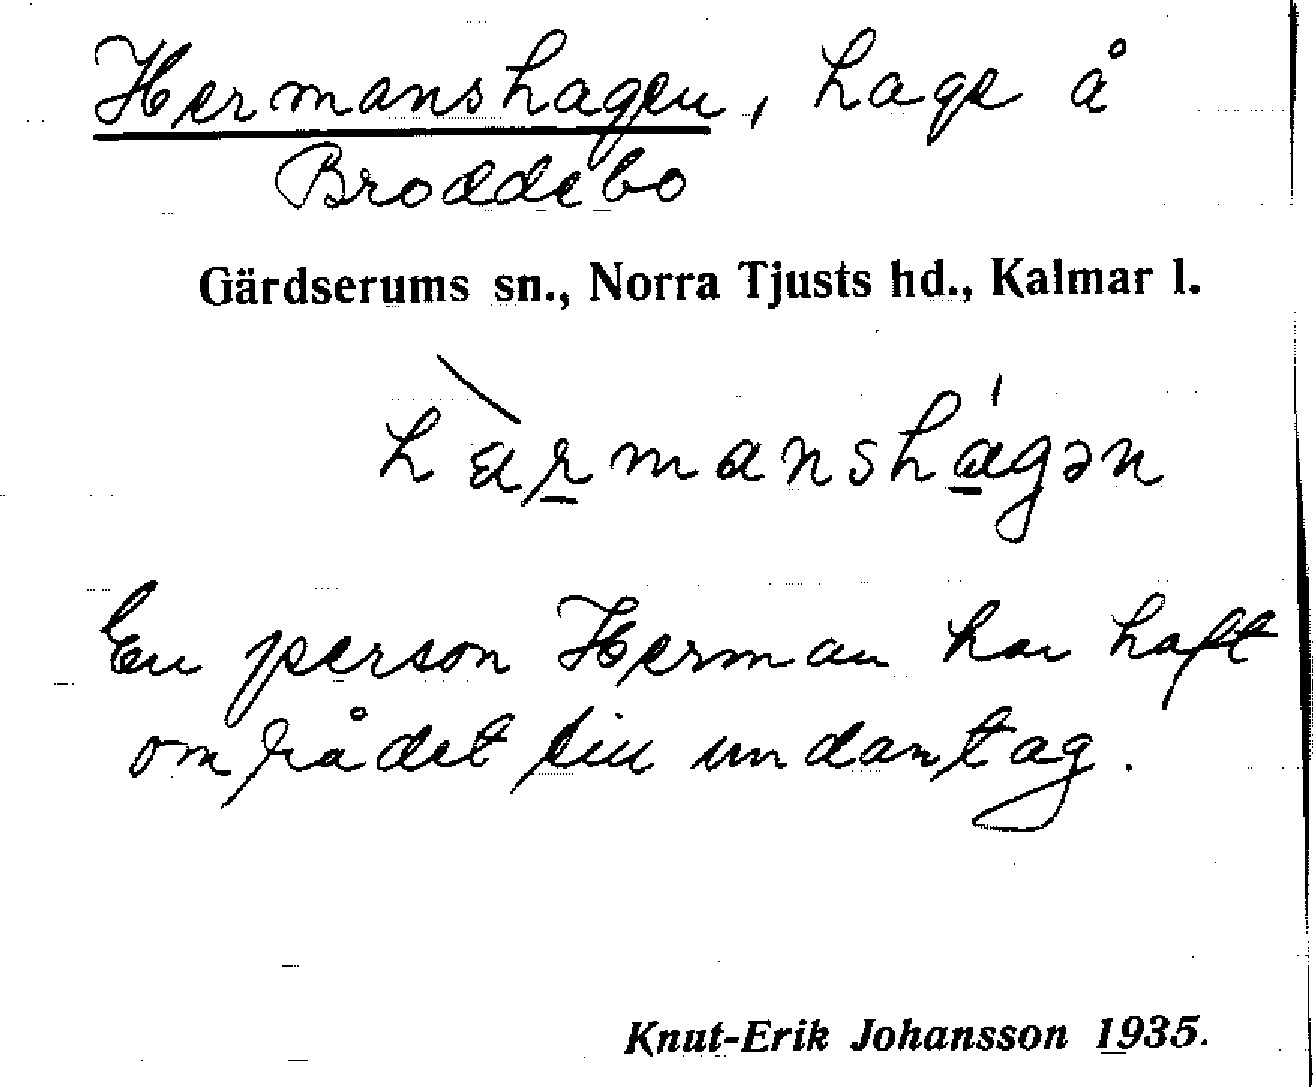 Hermanshagen, hage å
Broddebo
Gärdserums sn., Norra Tjusts hd., Kalmar l.
hàrmanshágən
En person Herman har haft
området till undantag.
Knut-Erik Johansson 1935.